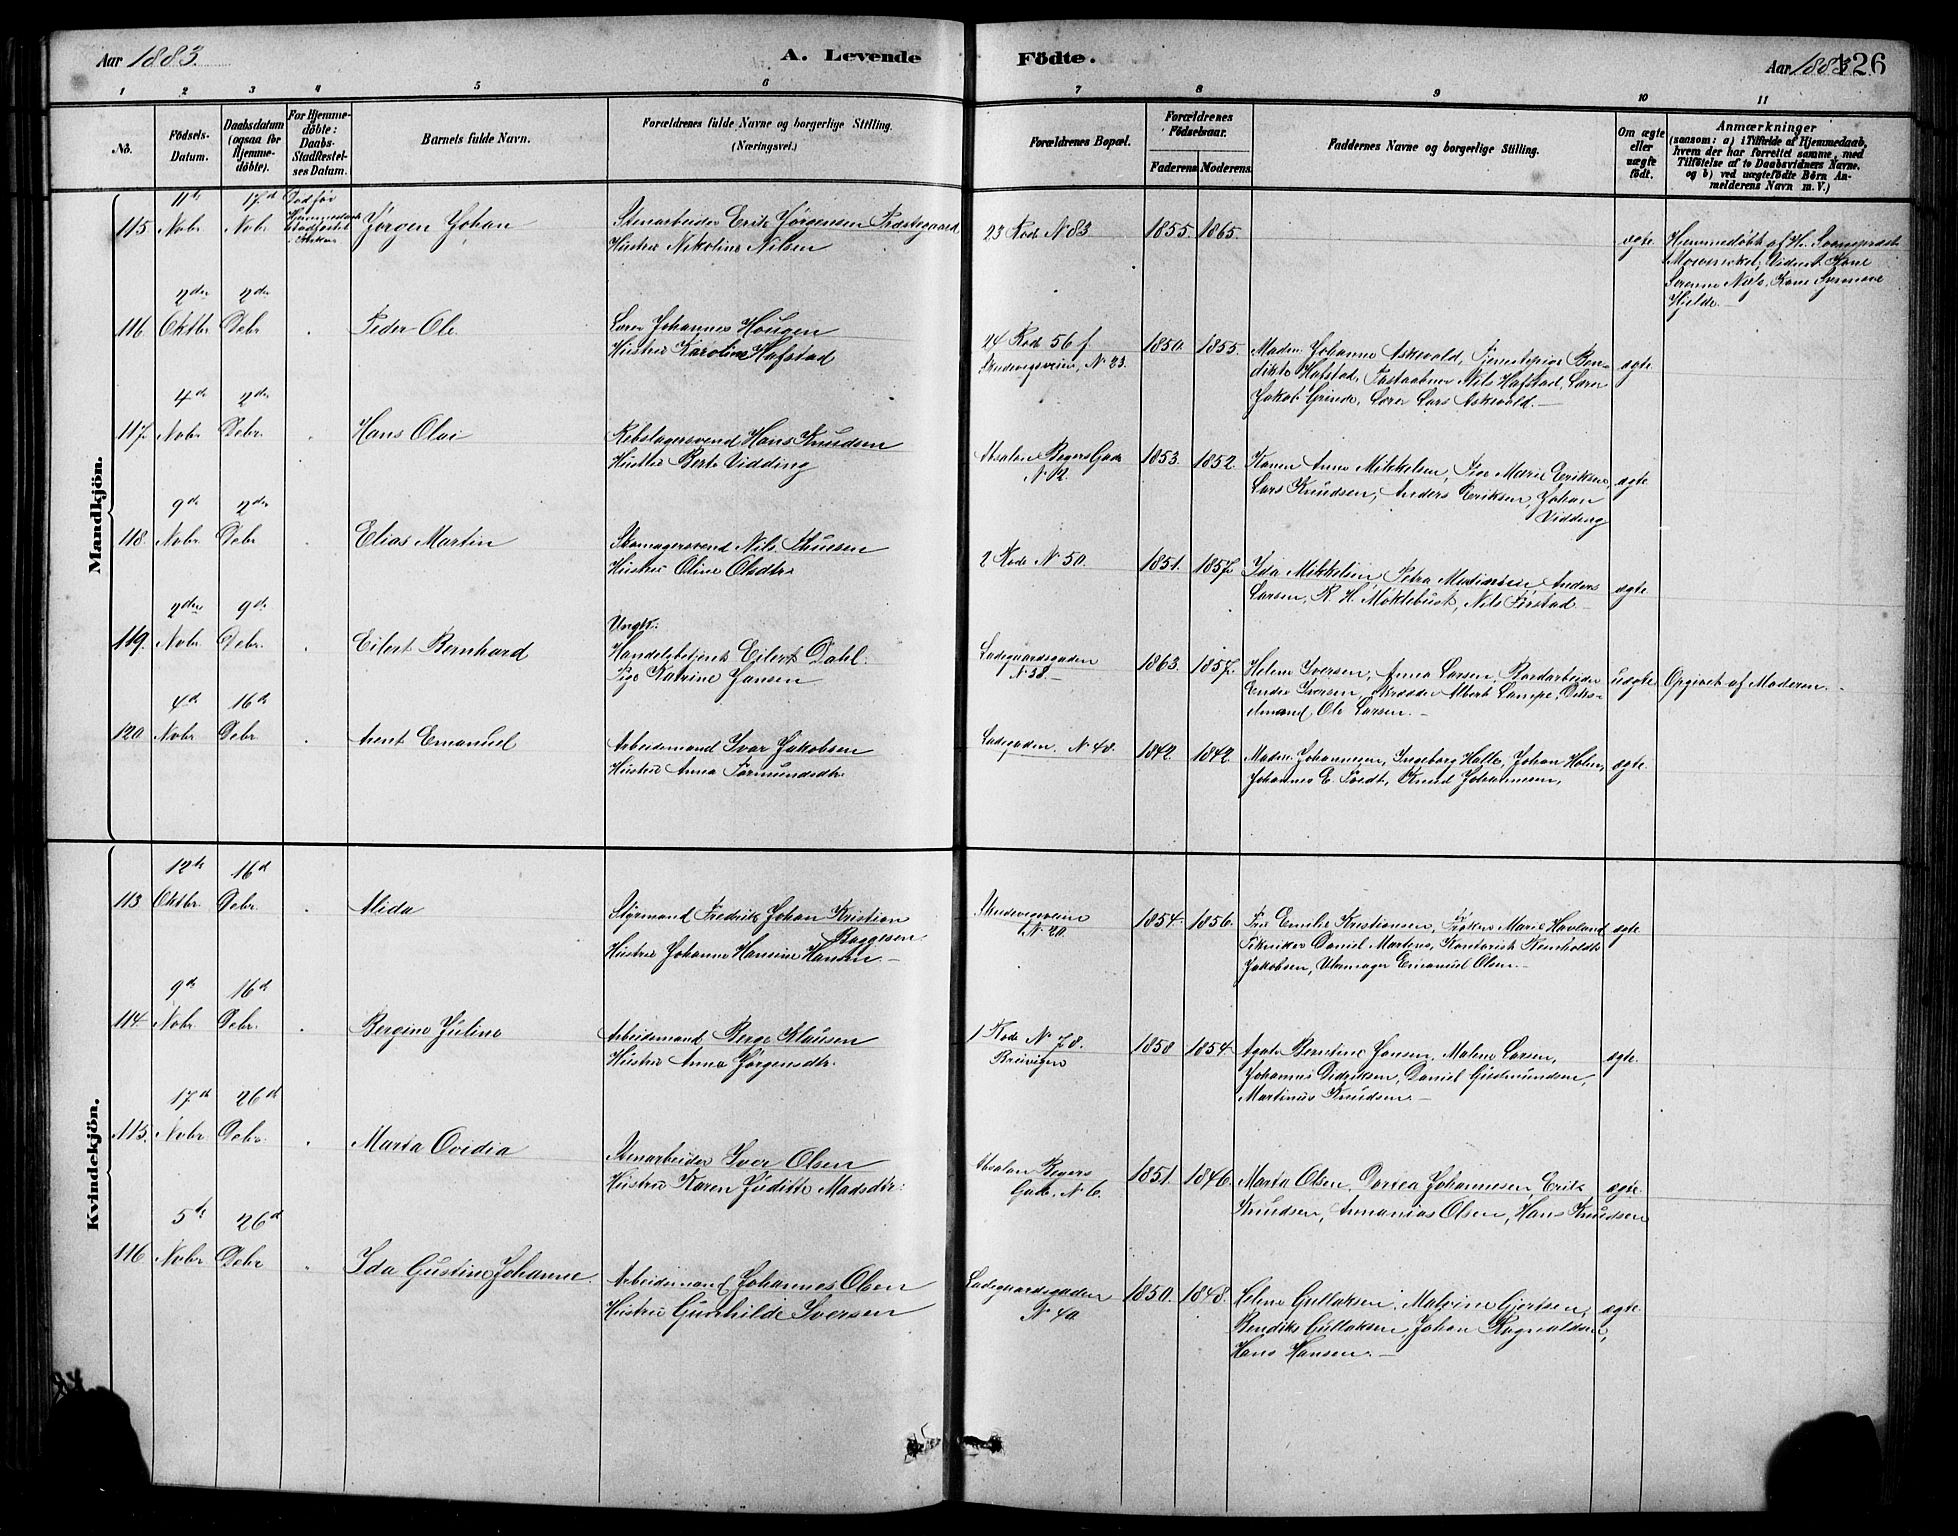 Aar 1883.
A. Levende
Födte.
Aar 1883
126
1 2 3 4 5 6 7 8 9 10 11
No.
Födsels-Datum.
Daabsdatum (ogsaa for Hjemmedöbte).
For Hjemmedöbte: Daabs-Stadfæstelses Datum.
Barnets fulde Navn.
Forældrenes fulde Navne og borgerlige Stilling. (Næringsvei.)
Forældrenes Bopæl.
Forældrenes Födselsaar.
Faderens Moderens.
Faddernes Navne og borgerlige Stilling.
Om ægte eller uægte födt.
Anmærkninger
(saasom: a) i Tilfælde af Hjemmedaab, hvem der har forrettet samme, med Tilföielse af to Daabsvidners Navne, og b) ved uægtefödte Börn Anmelderens Navn m. V.)
Mandkjön.
115 11te Nobr 17d Nobr Död før
Jørgen Johan
Stenarbeider Erik Jørgensen
Hustru Nikoline Nilsen
23 Rode N 83
1855. 1865.
ægte
Hjemmedøbt af H.
Vidner: Kone
Kone
Hjelde.
116 2den Oktbr 2den Debr
Peder Ole
Lærer Johannes Hougen
Hustru Karoline Hafstad
24 Rode 56 f
N. 23.
1850. 1855.
Madm. Johanne Askevold, Tjenestepige Ben-
dikte Hafstad, Nils Hafstad, Lærer
Jakob Grinde, Lærer Lars Askevold.
ægte
117. 4de Nobr 2den Debr.
Hans Olai
Rebslagersvend Hans Knudsen
Hustru Berte Vidding
Absalon Beyers Gade
N 12.
1853. 1852.
Koner Anne Mikkelsen, Pige Marie Eriksen,
Lars Knudsen, Anders Eriksen, Johan
Vidding
ægte
118. 9de Nobr. 2den Debr
Elias Martin
Skomagersvend Nils
Hustru Oline Olsdtr.
2 Rode N 50.
1851. 1857.
Ida Mikkelsen, Petra Martinsen, Anders
Larsen, R. H. Møklebust, Nils
ægte
119. 2den Nobr. 9de Debr.
Eilert Bernhard
Ungk.
Handelsbetjent Eilert Dahl.
Pige Katrine Jansen
Ladegaardsgaden
N 38.
1863. 1857.
Helene Iversen, Anna Larsen, Bordarbeider
Endre Iversen, Skrædder Albert Lampe,
Ole Larsen.
uægte
Opgivet af Moderen.
120 4de Nobr 16de Debr
Arent Emanuel
Arbeidsmand Ivar Jakobsen
Hustru Anna
N 48.
1842. 1842.
Madm. Johannesen, Ingeborg Halle, Johan Holm,
Johannes E. Knud Johannesen,
ægte.
Kvindekjön.
113 12te Oktbr. 16d Debr.
Alida
Styrmand Fredrik Johan Kristian
Baggesen
Hustru Johanne Hansine Hansen
N 20.
1854. 1856.
Fru Emilie Kristiansen, Frøken Marie Havland
Daniel Martens, Kontorist Reinholdt
Jakobsen, Uhrmager Emanuel Olsen.
ægte
114 9de Nobr. 16d Debr.
Bergine Juline
Arbeidsmand Berge Klausen
Hustru Anna Jørgensdtr.
1 Rode N 78.
1850 1854.
Agate Berntine Jansen, Malene Larsen,
Johannes Didriksen, Daniel Gudmundsen,
Martinus Knudsen.
ægte.
115. 17de Nobr 26d Debr.
Marta Ovidia
Stenarbeider Iver Olsen
Hustru Karen Juditte Madsdtr.
Absalon Beyers
Gade, N 6.
1851. 1846.
Marta Olsen, Dortea Johannesen, Erik
Knudsen, Ananias Olsen, Hans Knudsen
ægte.
116 5te Nobr 26d Debr
Ida Gustine Johanne
Arbeidsmand Johannes Olsen
Hustru Gunhilde Iversen
Ladegaardsgaden
N 40
1850. 1848.
Helene Gullaksen, Malvine Gjertsen,
Bendiks Gullaksen, Johan Ragnvaldsen,
Hans Hansen.
ægte